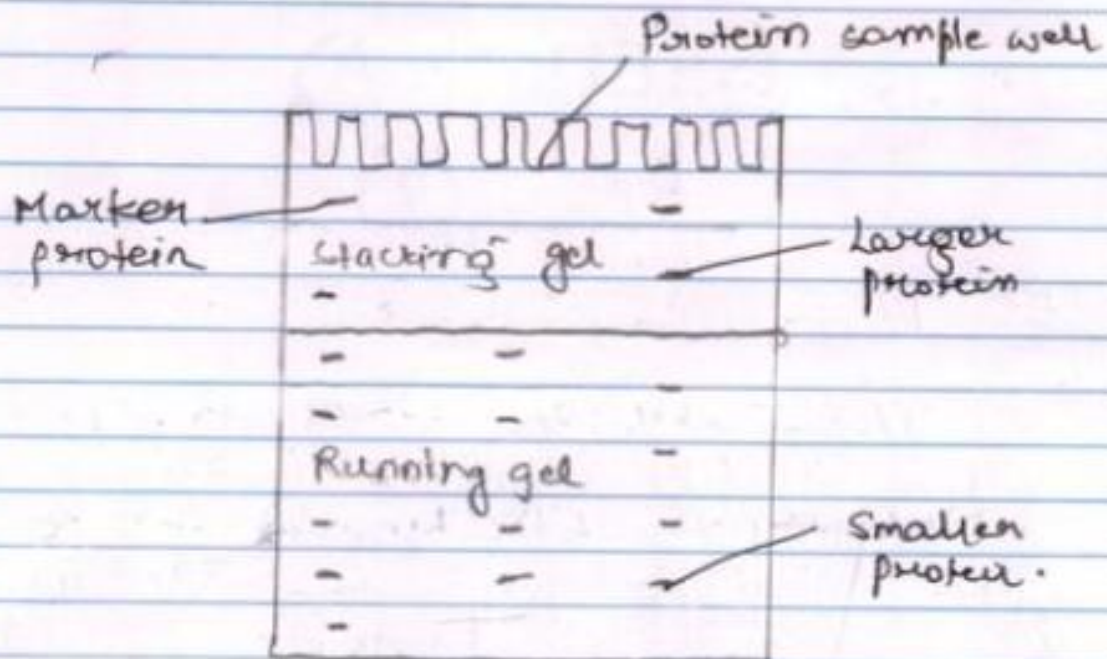 Protein sample well
Marker
protein
Stacking gel
Larger
protein
Running gel
Smaller
protein.